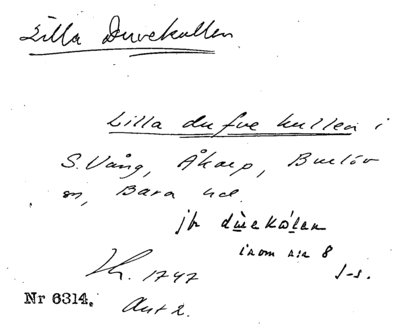 Lilla Duvekullen
Lilla dufve kullen i
S. Vång, Åkarp, Burlöv
sn, Bara hd.
jfr duekölen
inom n:r 8
J-s.
Kh. 1747
Nr 6314. Akt 2.